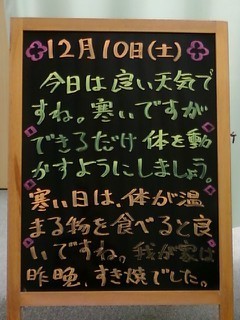 12月10日(土)
今日は良い天気で
すね。寒いですが
できるだけ体を動
かすようにしましょう。
寒い日は、体が温
まる物を食べると良
いですね。我が家は
昨晩、すき焼でした。